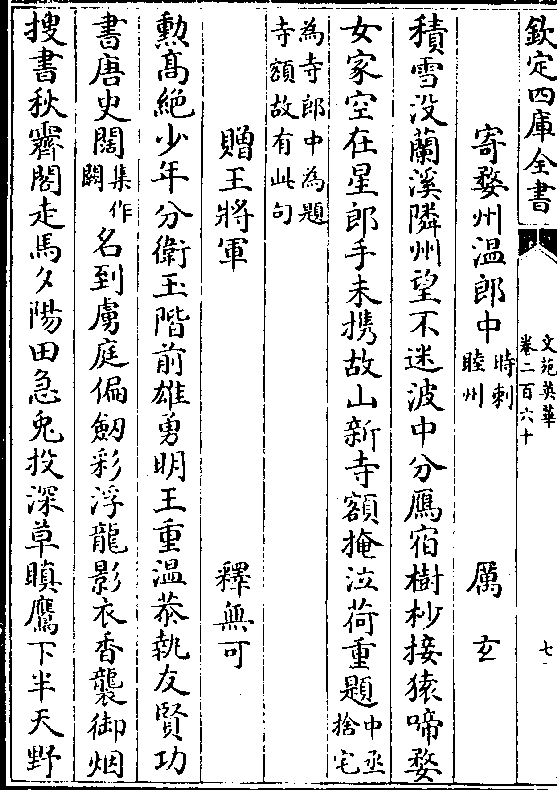 欽定四庫全書
文苑英華
卷二百六十
七
寄婺州温郎中
時刺
睦州
厲玄
積雪没蘭溪隣州望不迷波中分雁宿樹杪接猿啼婺
女家空在星郎手未携故山新寺額掩泣荷重題
中丞
捨宅
為寺郎中為題
寺額故有此句
贈王將軍
釋無可
勲髙絶少年分衛玉階前雄勇明王重温恭執友賢功
書唐史闊
集作
闕
名到虜庭偏劔彩浮龍影衣香襲御烟
搜書秋霽閣走馬夕陽田急兔投深草瞋鷹下半天野